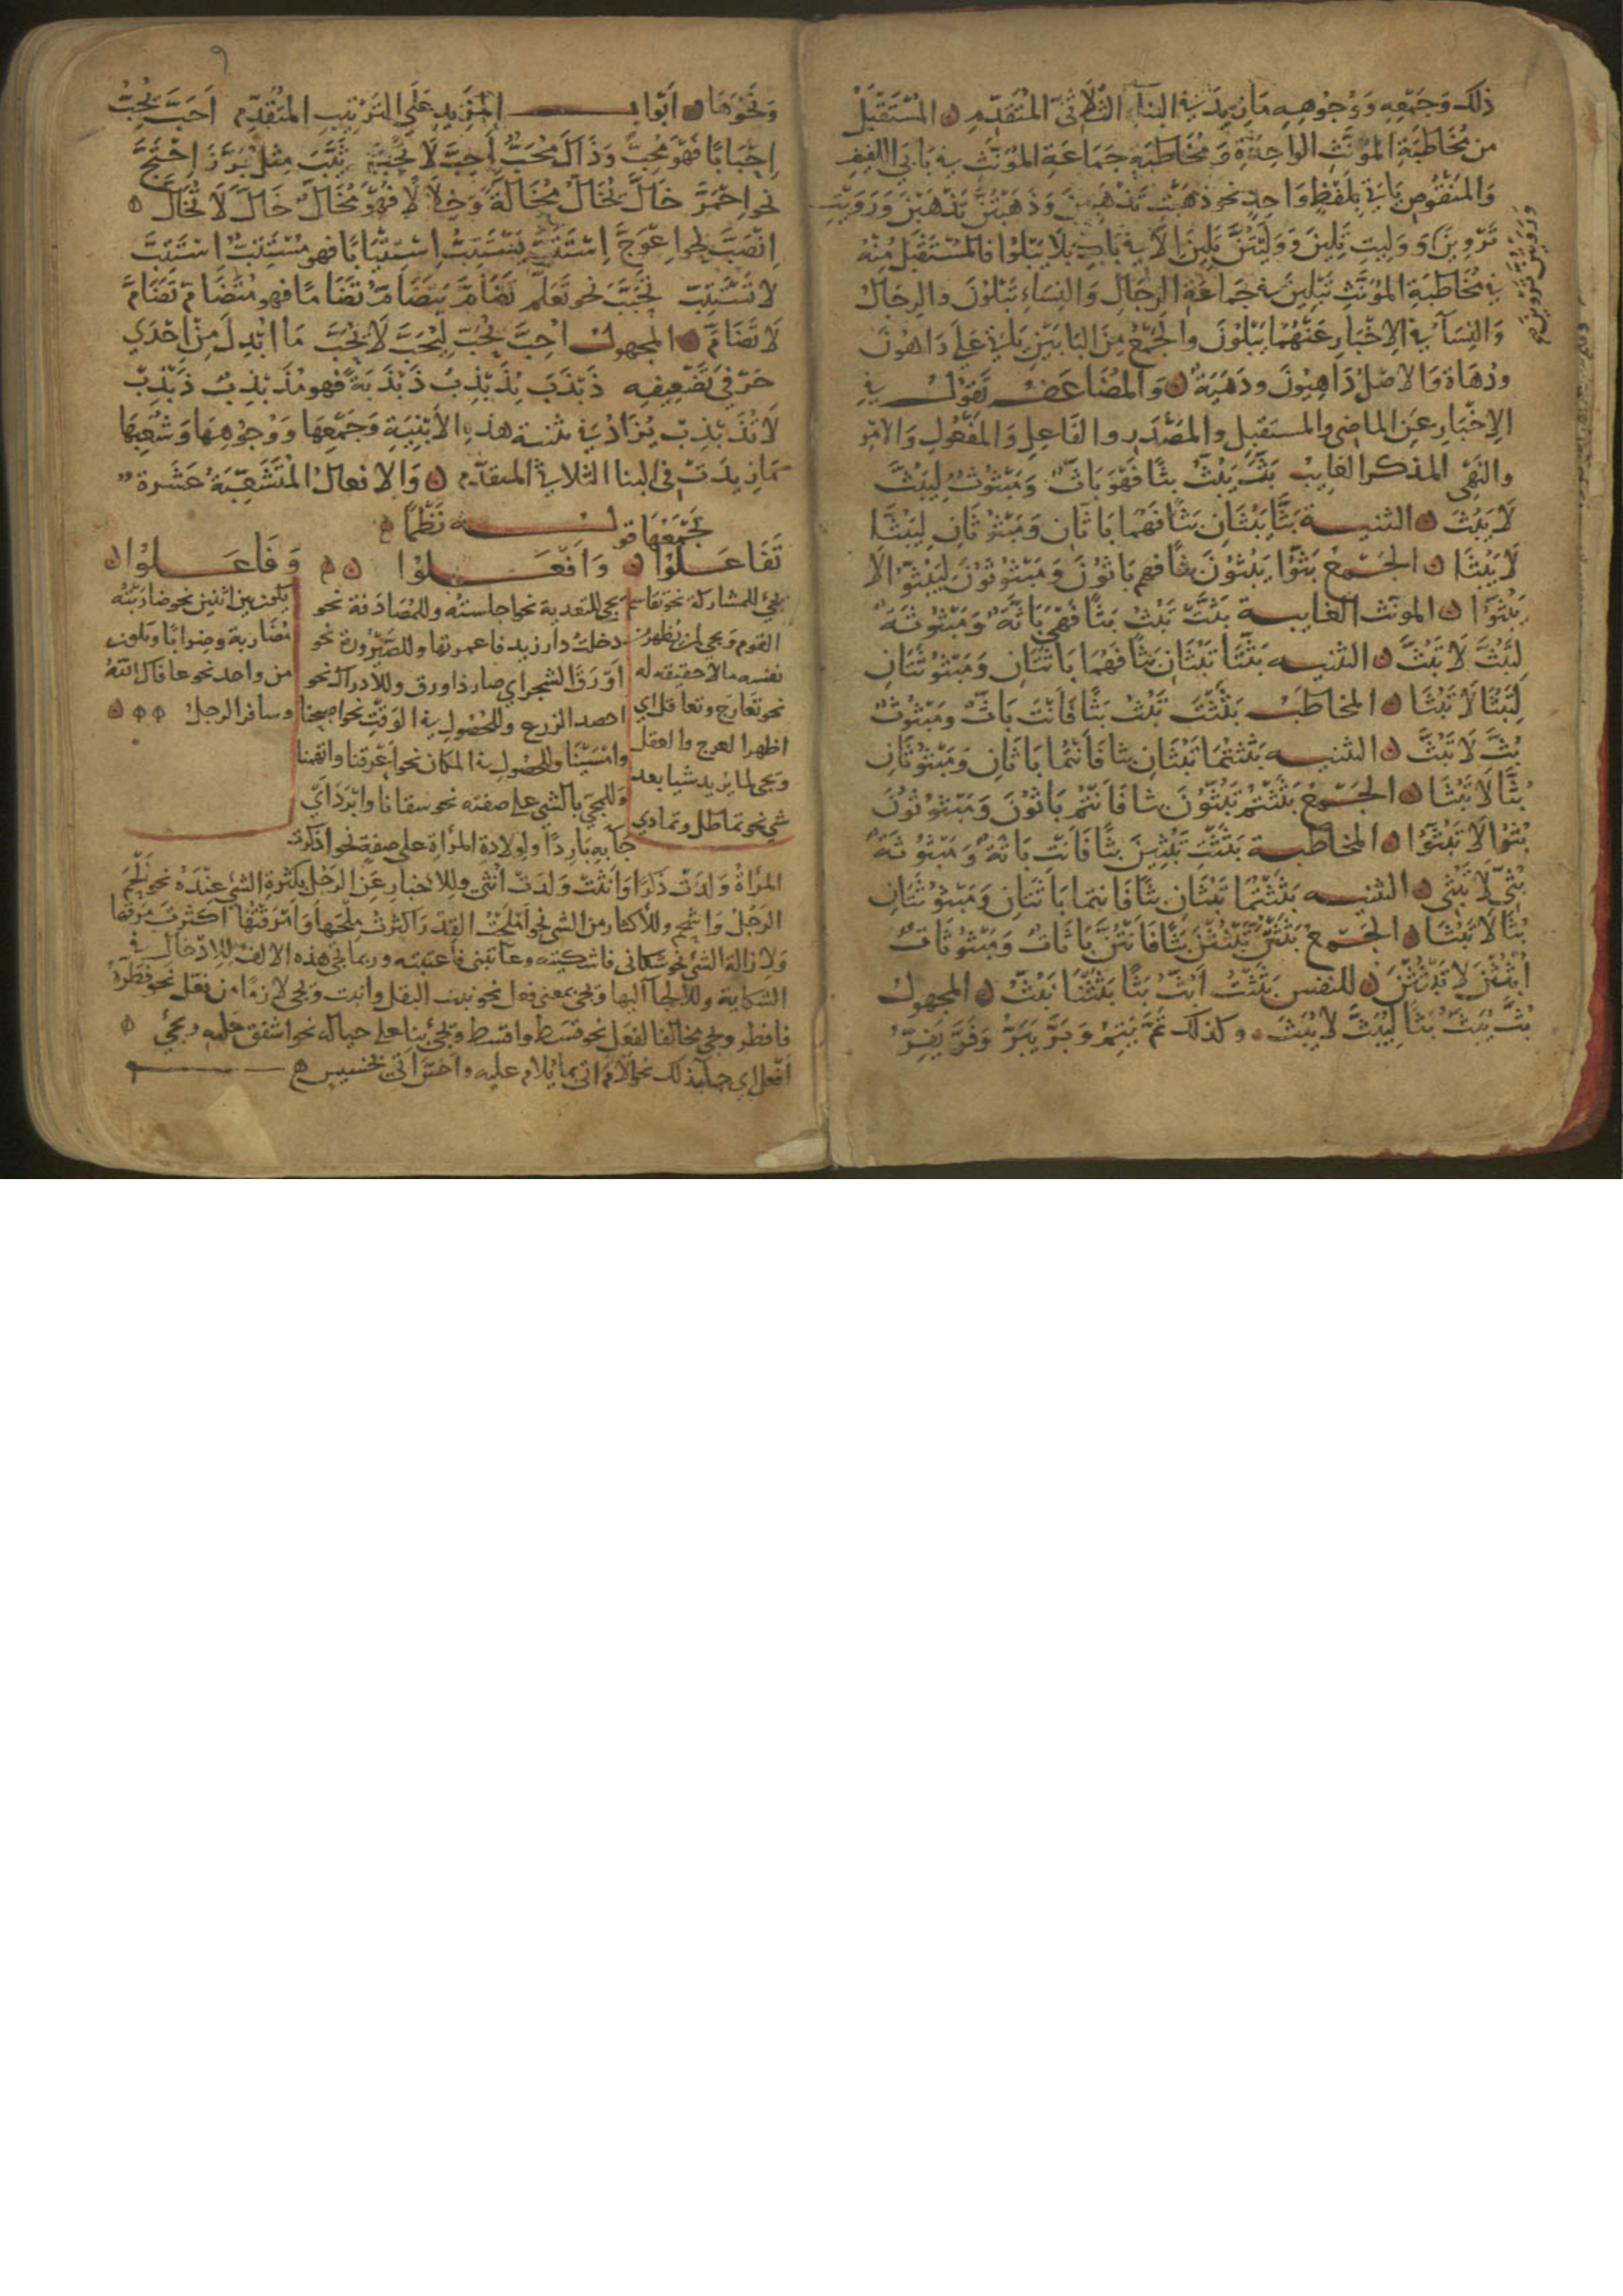 ذلك وَجَمْعِه وَوُجُوْهِهِ مَا زِيدَ في البناءِ الثُلاثيّ المُتَقَدِّمِ ه المُسْتَقْبَلُ
من مُخَاطَبَةِ المُؤنَّثِ الواحِدَةِ وَمُخَاطَبَةِ جَمَاعَةِ المُؤنَّث في بَابَي اللفيفِ
وَالمَنْقُوصِ يَاتي بِلَفْظٍ وَاحِدٍ نحو ذهَبْتِ تَذْهَبِينَ وَذَهَبْتُنَّ تَذْهَبْنَ وَرَوَيْتِ
تَرْوِينَ وَوَلِيتِ تَلِينَ وَوَلِيْتُنَّ تَلِينَ الا في بَابِ بَلا يَبْلُوا فالمُسْتَقبَلُ مِنْهُ
في مُخَاطَبَةِ المُؤنَّثِ تَبْلِينَ في جَمَاعَةِ الرِجَالِ وَالنِسَاءِ تَبْلوُنَ والرِجَالُ
وَالنِسَآءُ في الاِخْبَارِ عَنْهُمَا يَبْلُونَ والجَمْعُ مِنَ البَابَيْنِ يَاتي عَلَى دَاهُونَ
ودُهَاة وَالاصْلُ دَاهِيُونَ ودَهَيَةٌ ه وَالمُضَاعَف تَقوْلُ في
الاِخْبَارِ عَنِ الماضي والمستقبِلِ والمَصْدَرِ والفَاعِلِ وَالمَفْعُولِ وَالامْرِ
والنَهْيِ المذكر الغايب بَثَّ يَبُثُّ بثًّا فَهْوَ بَاثٌّ وَمَبْثُوثٌ لِيَبُثَّ
لَا يَبُثَّ ه التثنيـة بَثَّا يَبُثَّانِ بَثًّا فَهُمَا بَاثَّانِ وَمَبْثُوثَانِ لِيَبُثَّا
لَا يَبُثَّا ه الجَـمْعُ بَثُّوْا يَبُثُّوْنَ بثًّا فهم بَاثُّونَ وَمَبْثُوثُونَ لِيَبُثُّوْا لَا
يَبُثُّوْا ه المونث الغايبـة بَثَّتْ تَبُثُّ بَثًّا فَهْيَ بَاثَّةٌ وَمَبْثُوثَةٌ
لِتَبُثَّ لَا تَبُثَّ ه التثنيـه بَثَّتَا تَبُثَّانِ بَثًّا فَهُمَا بَاثَّتَانِ وَمَبْثُوثَتَانِ
لِتَبُثَّا لَا تَبُثَّا ه المخاطَب بَثَثْتَ تَبُثُّ بَثًّا فَانْتَ بَاثٌّ وَمَبْثُوثٌ
بُثَّ لَا تَبُثَّ ه التثنيـه بَثَثْتُمَا تَبُثَّانِ بثا فَانْتُمَا بَاثَّانِ وَمَبْثُوثَانِ
بُثَّا لَا تَبُثَّا ه الجَـمْعُ بَثَثْتُمْ تَبُثُّوْنَ بثا فَانْتُمْ بَاثُّونَ وَمَبْثُوثُونَ
بُثُّوْا لَا تَبُثُّوْا ه المخاطبـة بَثَثْتِ تَبُثِّيْنَ بثًّا فَانْتِ بَاثَّةٌ وَمَبْثُوثَةٌ
بُثِّي لَا تَبُثِّي ه التثنيـه بَثَثْتُمَا تَبُثَّانِ بثًّا فَانتما بَاثَّتَانِ وَمَبْثُوثَتَانِ
بُثَّا لَا تَبُثَّا ه الجَـمْعُ بَثَثْتُنَّ تَبْثُثْنَ بَثًّا فَانْتُنَّ بَاثَّاتٌ وَمَبْثُوثَاتٌ
اُبْثُثْنَ لَا تَبْثُثْنَ ه للنفس بَثَثْتُ اَبُثُّ بَثًّا بَثَثْنَا نَبُثُّ ه المجهول
بُثَّ يُبَثُّ بَثًّا لِيُبَثَّ لا يُبَثَّ وكذلك تَمَّ يَتِمُّ وَبَرَّ يَبَرُّ وَفَرَّ يَفِرُّ
وَرَوَيْتُنَّ تَرْوِينَ صح
وَنَحْوَهَا ه اَبْوابـــ المَزِيدِ عَلَى التَرْتِيبِ المتَقَدِّم اَحَبَّ يُحِبُّ
اِحْبَابًا فَهْوَ مُحِبٌّ وَذَاكَ مُحَبٌّ اَحِبَّ لَا تُحِبَّ مِثْلُ بَرَّزَ اِحْتَجَّ
نحو احْمَرَّ خَالَّ يُخَالُّ مُخَالَّةً وَخِلَالًا فهُوَ مُخَالٌّ خَالَّ لَا تُخَالَّ ه
اِنْصَبَّ نحو اعْوَجَّ اِسْتَتَبَّ يَسْتَتِبُّ اِسْتِتْبَابًا فهو مُسْتَتِبٌّ اسْتَتِبَّ
لا تَسْتَتِبَّ تَحَبَّبَ نحو تَعَلَّمَ تَضَامَّ يَتَضَامُّ تَضَامًّا فهو مُتَضَامٌّ تَضَامَّ
لَا تَضَامَّ ه المجهول اُحِبَّ يُحَبُّ لِيُحَبَّ لَا يُحَبَّ مَا ابْدِلَ مِنْ اَحْدَي
حَرْفَي تَضْعِيفِه ذَبْذَبَ يُذَبْذِبُ ذَبْذَبَةً فهو مُذَبْذِبٌ ذَبْذِبْ
لَا تُذَبْذِبْ يُزَادُ في تثنية هذهِ الاَبْنِيَةِ وَجَمْعِهَا وَوُجُوْهِهَا وَشُعَبِهَا
كمَا زِيدَتْ في البنا الثلاثي المتقدّم ه وَالافعالُ المُتَشَعِّبَةُ عَشَرة
يَجْمَعُهَا قولـــه نَظْمًا
تَفَاعَـلُوْا ه وَافْعَـلُوْا ه وَفَاعَـلُوْا ه
يجيُ للمشاركة نحو تقاسم
القوم ويجي لمن يُظهِرُ من
نفسه مالا حقيقه له
نحو تعارَجَ وتعاقل اي
اظهر العرج والعقل
ويجي لما يزيد شيا بعد
شي نحو تماطل وتمادي
يجي للتعدية نحو اجلستُه وللمُصَادَفة نحو
دخلتُ دار زيد فاعمرتها وللصَيْرُورة نحو
اَوْرَقَ الشجر اي صار ذا ورق وللادراك نحو
احصد الزرع وللحُصُولِ في الوَقْتِ نحو اصبحنا
وامْسَيْنَا وللحصُولِ في المكان نحو اَعْرَقنا واتهمنا
وَللمجَي بالشي على صفته نحو سقانا وابْرَدَ اَيْ
جَا بِهِ بَارِدًا ولولادةِ المرْأةِ على صفةٍ نحو اذكرت
يكون بين اثنين نحو ضاربْتُه
مُضَاربة وضِرابًا ويكون
من واحد نحو عافاك اللهُ
وسافر الرجل ه
المرْأةُ وَلَدَتْ ذَكَرًا وَانَثَتْ وَلَدَتْ انْثَي وللاخبارِ عَنِ الرَجُلِ بكثرةِ الشئ عِنْدَهُ نحو اَلْحَمَ
الرَجُلُ وَاشْحَم وللاكثار من الشي نحو اَمْلَحْتُ القِدْرَ اكْثَرتُ مِلْحَهَا وَاَمْرَقْتُهَا اكثرتُ مَرَقَهَا
ولازالة الشئ نحو شكاني فاشكيته وعاتبني فاعتبته وربما تجي هذه الالف للادخال في
الشكاية وللالجا اليها ويجي بمعني فعل نحو نبت البقل وانبت ويجي لازمًا من فعل نحو فَطَّرتُهُ
فافطر ويجي مخالفا لفعَل نحو قسَط واقسَط ويجئ بنا على حياله نحو اشفق عليه ويجئ
اَفْعَلَ اي جا بذلك نحو اَلَامَ اتي بما يُلام عليه واَخَسَّ اتي بخسيس